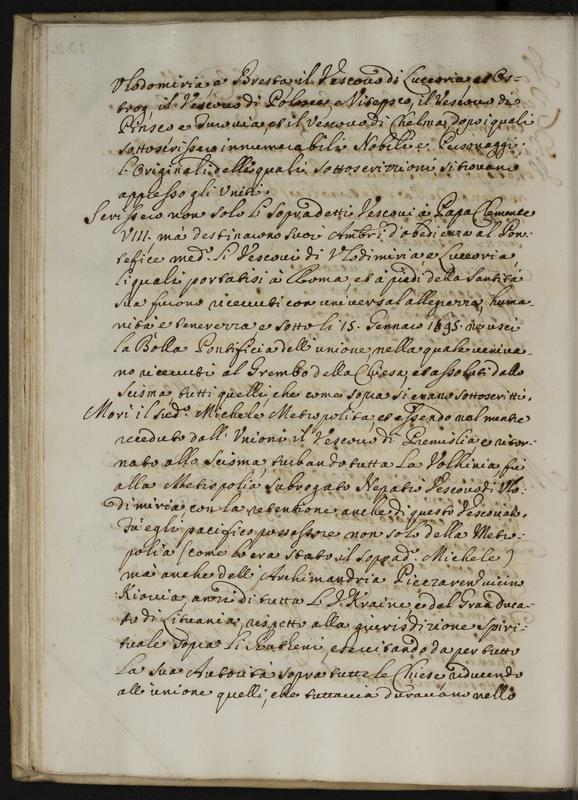 Vlodomiria a Bresta il Vescovo di Luceoria et Os=
trog, il Vescovo di Polosca e Vitepsco, il Vescovo di
Pinsco e Turovia et il Vescovo di Chelma dopo i quali
sottoscrissero innumerabili Nobili e Personaggi.
L'Originali delle quali sottoscrizzioni si trovano
appresso gli Uniti.
Scrissero non solo li sopradetti Vescovi à Papa Clemente
VIII. mà destinarono suoi Ambri d'obedienza al Pon=
tefice med. li Vescovi di Vlodimiria e Luceoria,
li quali portatisi à Roma et à piedi della Santità
sua furono ricevuti con universal allegrezza, huma=
nità e tenerezza e sotto li 15. Gennaro 1695. ne uscì
la Bolla Pontificia dell'unione nella quale veniva=
no ricevuti al Grembo della Chiesa, et assoluti dallo
Scisma, tutti quelli che come sopra si erano sottoscritti.
Morì il sud. Michele Metropolita, et essendo nel mentre
receduto dall'Unioni il Vescovo di Premislia e ritor=
nato allo Scisma turbando tutta la Volhinia, fù
alla Metropolia subrogato Vescovo di Vlo=
dimiria con la retentione anche di questo Vescovato.
Fù egli pacifico possessore non solo della Metro=
polia (come lo era stato il sopradº Michele)
mà anche dell'Archimandria
Kiovia anzi di tutta L'Vkraine e del Gran Duca=
to di Lituania, rispetto alla giurisdizione spiri=
tuale sopra li Rutheni, esercitando da per tutto
la sua Autorità sopra tutte le Chiese riducendo
all'unione quelli, che tuttavia duravano nello